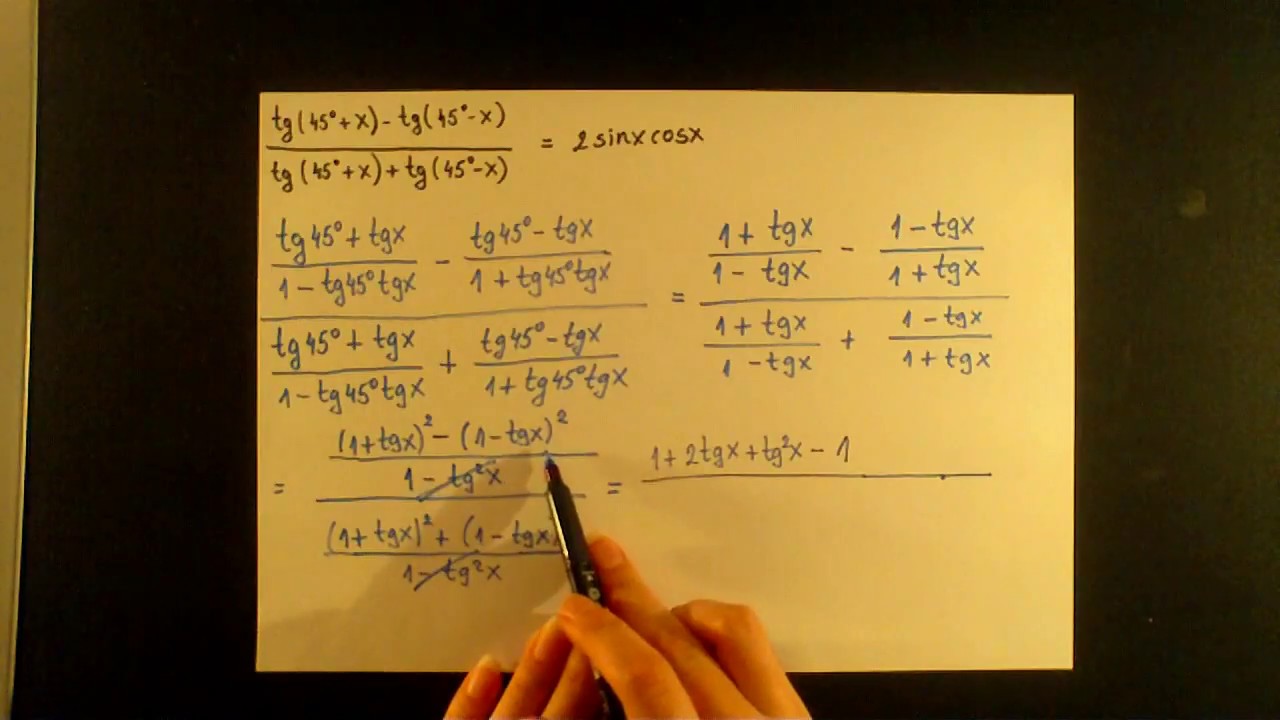 tg(45°+x)-tg(45°-x)
= 2sinxcosx
tg(45°+x)+tg(45°-x)
tg45°+tgx - tg45°-tgx
1-tg45°tgx 1+tg45°tgx
tg45°+tgx + tg45°-tgx
1-tg45°tgx 1+tg45°tgx
= 1+tgx - 1-tgx
1-tgx 1+tgx
1+tgx + 1-tgx
1-tgx 1+tgx
= (1+tgx)²-(1-tgx)²
1-tg²x
(1+tgx)²+(1-tgx)
1-tg²x
= 1+2tgx+tg²x-1